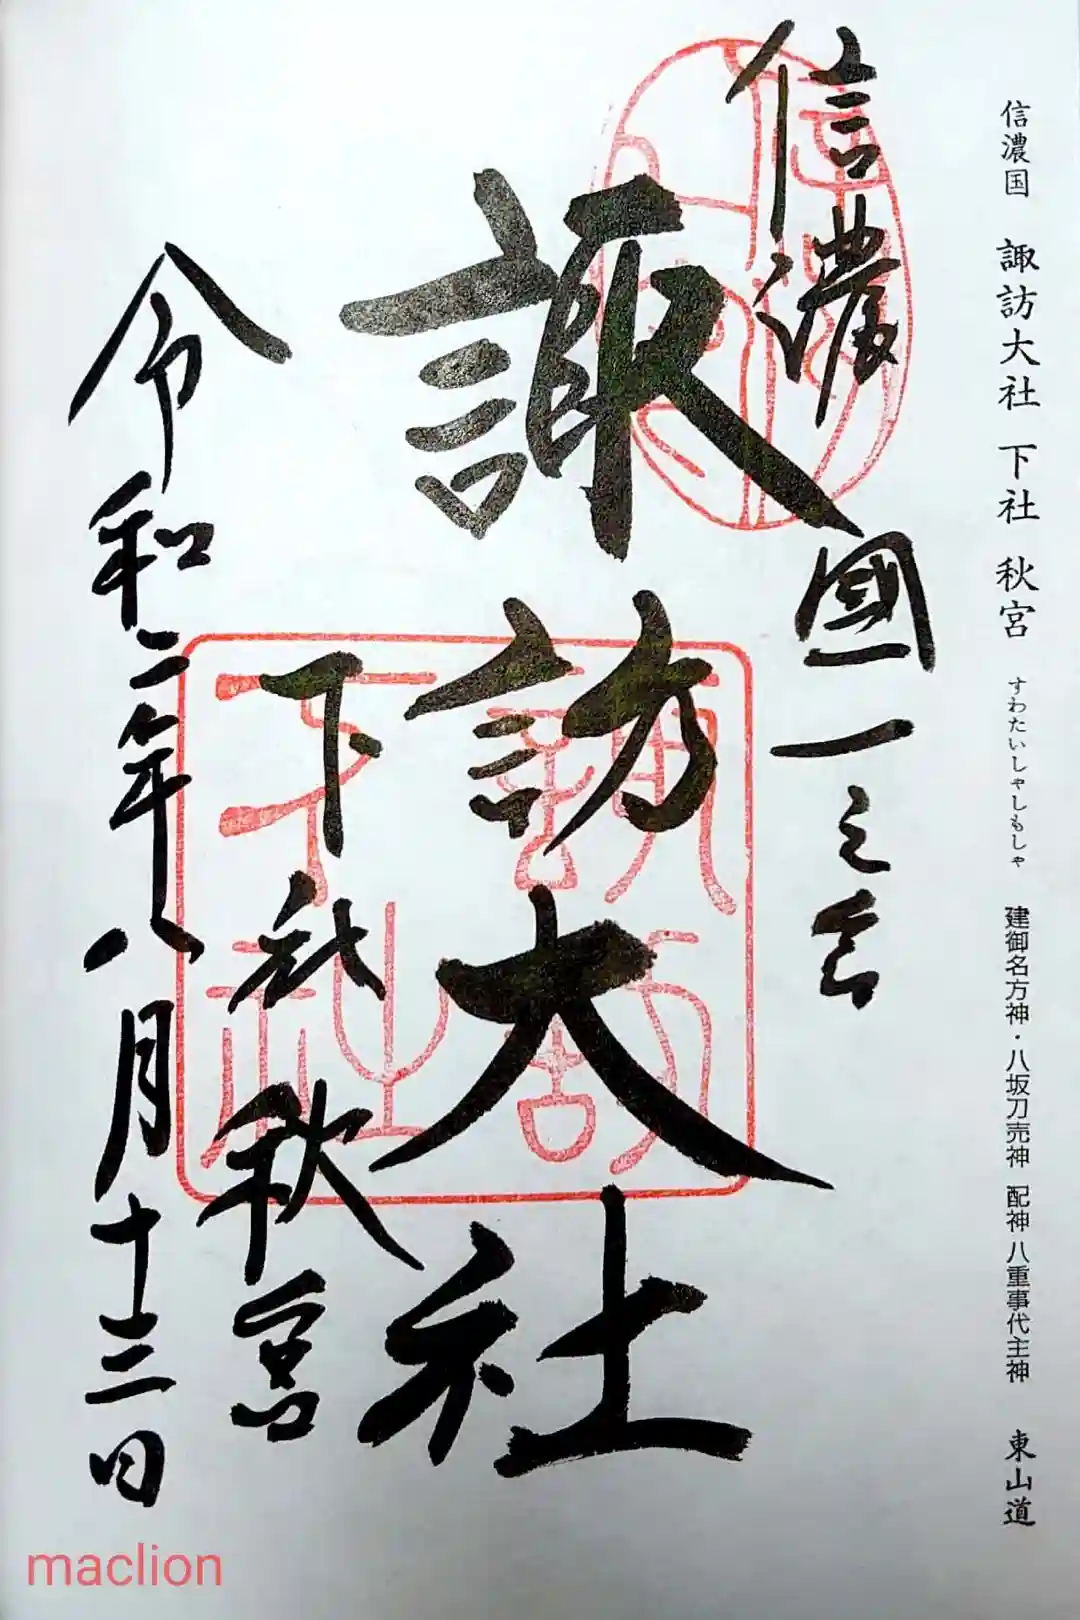 信濃国 諏訪大社 下社 秋宮 すわたいしゃしもしゃ 建御名方神・八坂刀売神 配神 八重事代主神 東山道
信濃國一之宮
諏訪大社
下社秋宮
令和二年八月十三日
maclion